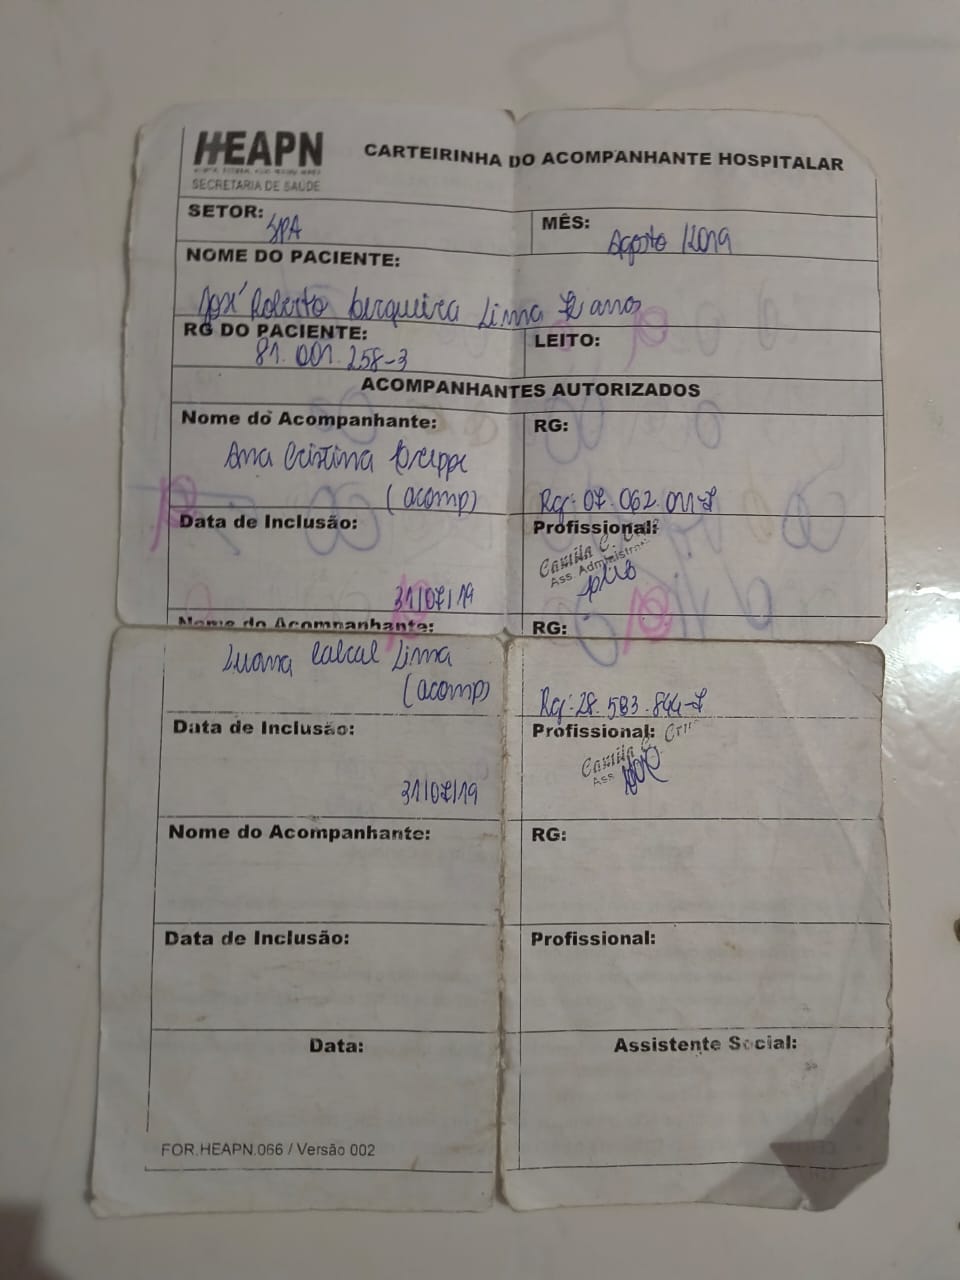 HEAPN
SECRETARIA DE SAÚDE
CARTEIRINHA DO ACOMPANHANTE HOSPITALAR
SETOR: SPA
MÊS: Agosto 2019
NOME DO PACIENTE:
José Roberto Cerqueira Lima anos
RG DO PACIENTE:
81.001.258-3
LEITO:
ACOMPANHANTES AUTORIZADOS
Nome do Acompanhante:
Ana Cristina
(acomp)
RG:
Rg: 07.062.011-7
Data de Inclusão:
31/07/19
Profissional:
Camila C.
Ass. Administr
Nome do Acompanhante:
Luana Cabral Lima
(acomp)
RG:
Rg: 28.583.844-7
Data de Inclusão:
31/07/19
Profissional:
Camila C.
Ass
Nome do Acompanhante:
RG:
Data de Inclusão:
Profissional:
Data:
Assistente Social:
FOR.HEAPN.066 / Versão 002